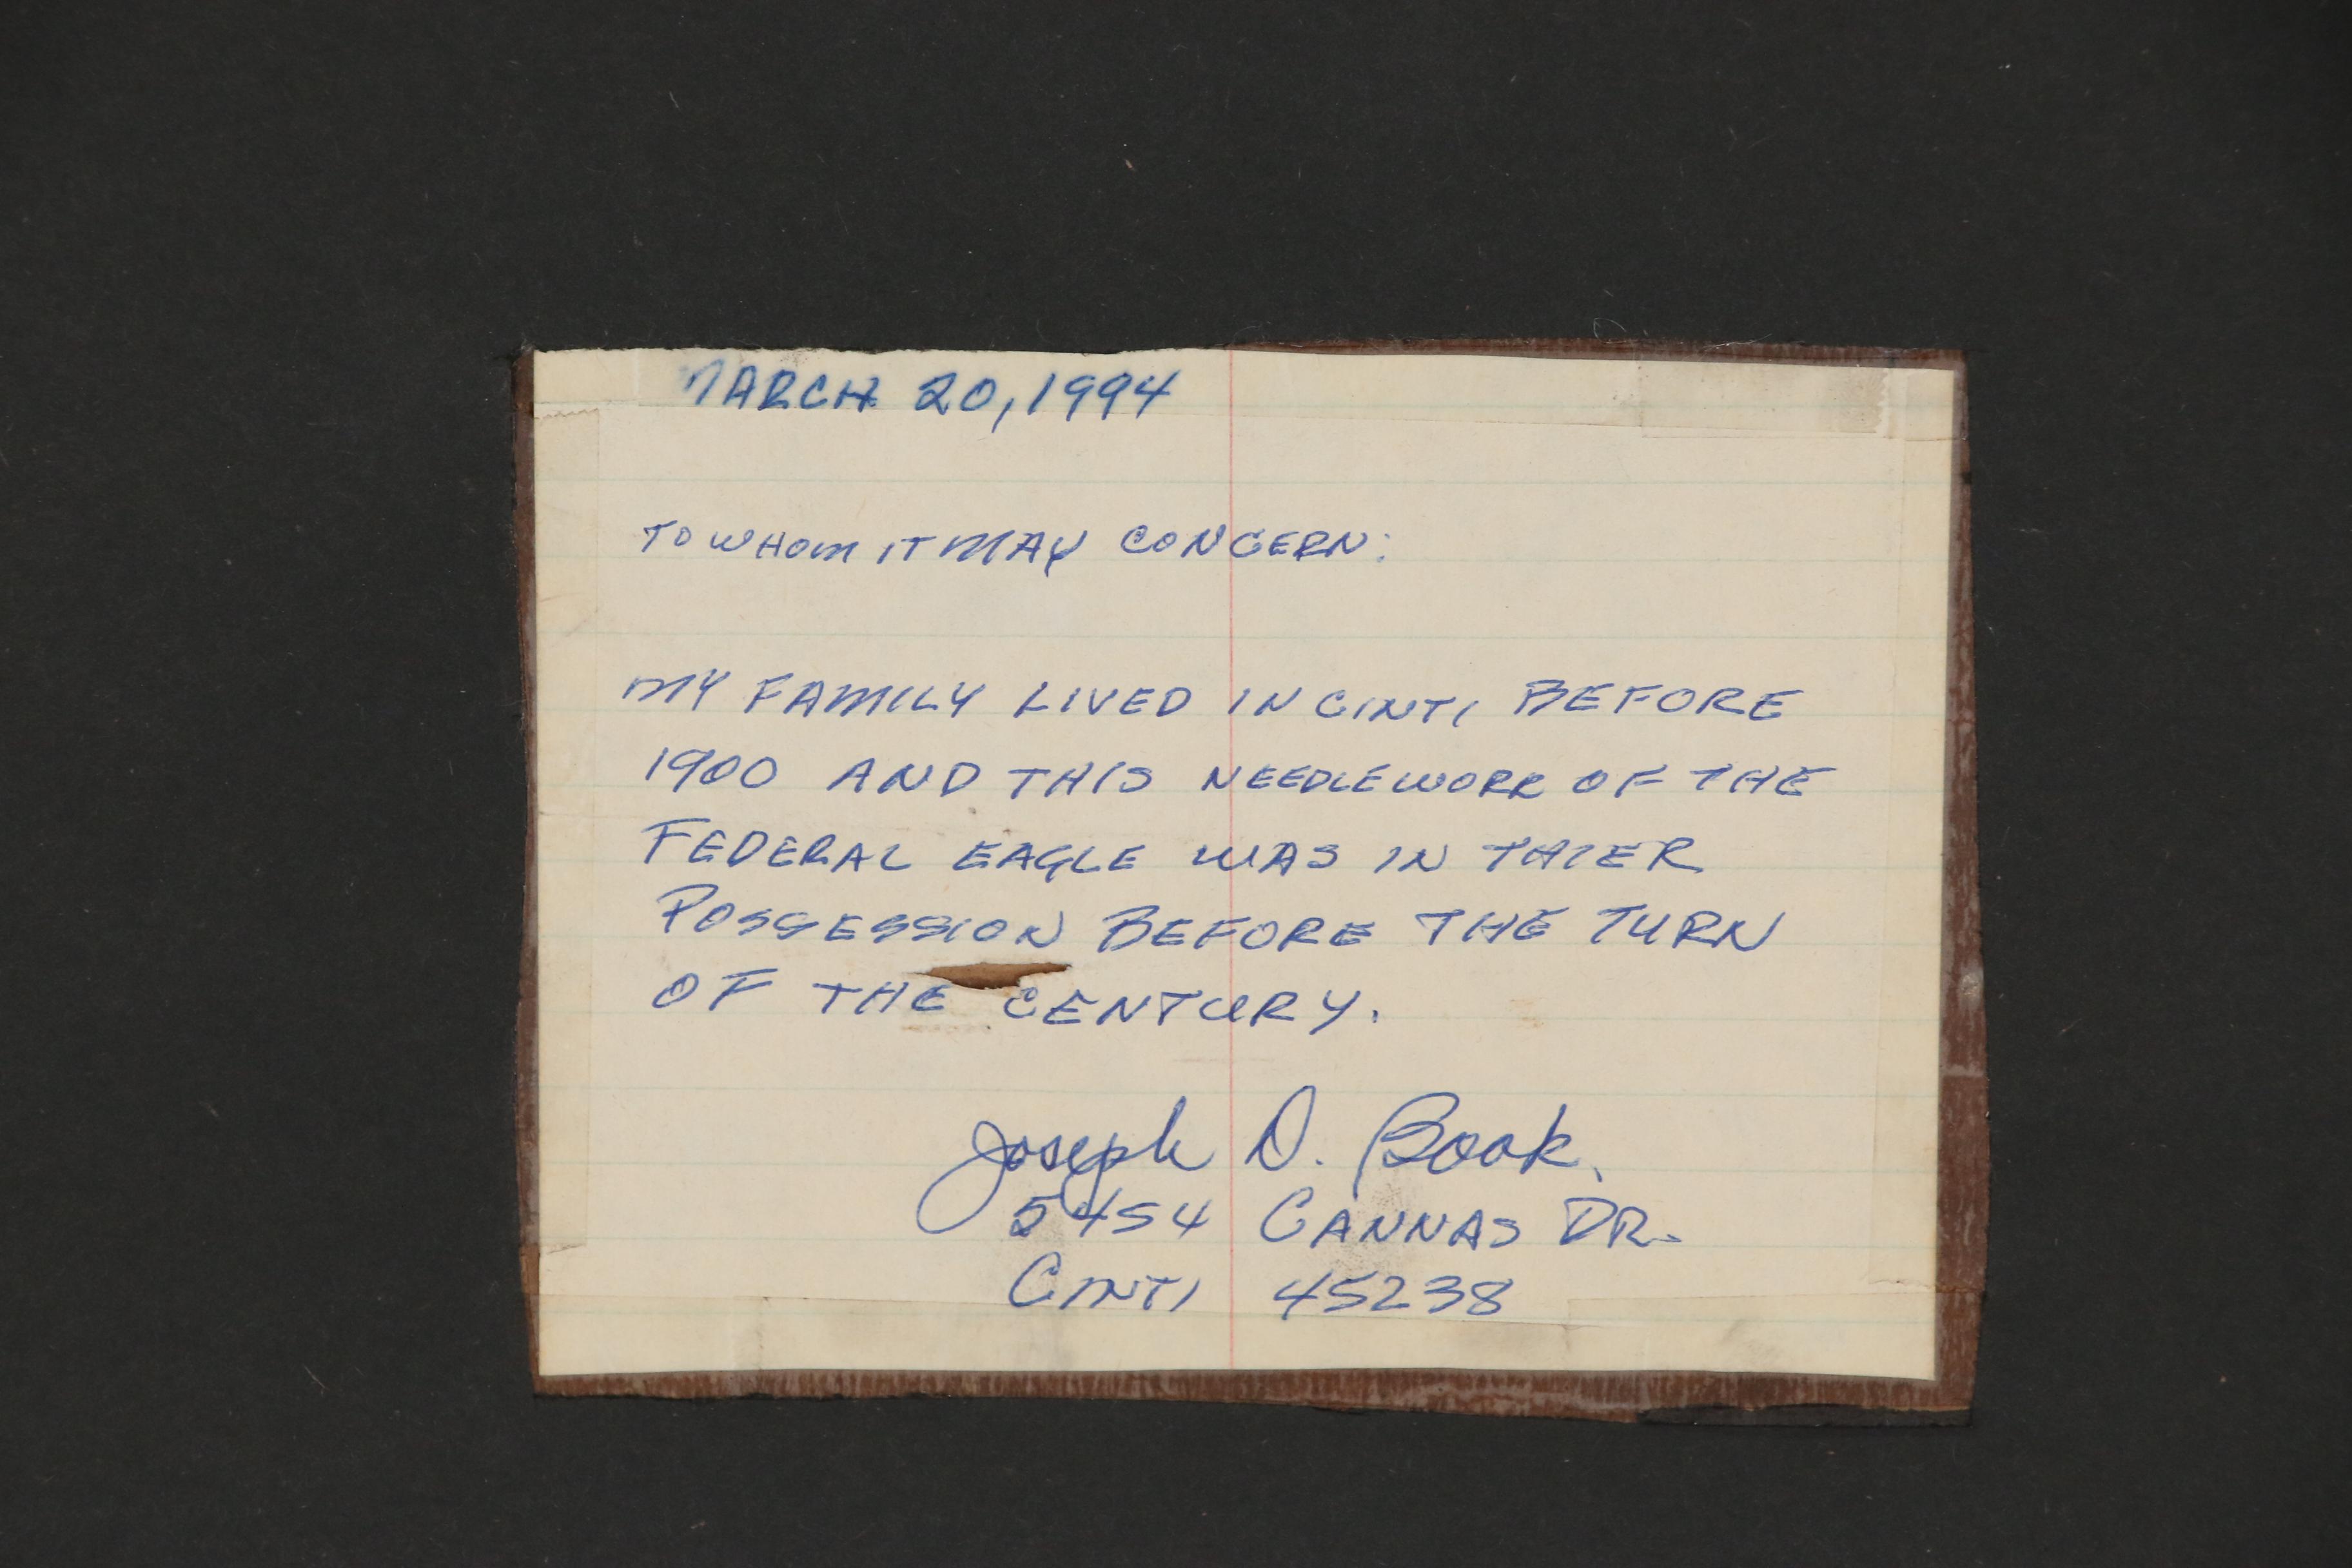 MARCH 20, 1994
TO WHOM IT MAY CONCERN:
MY FAMILY LIVED IN CINTI BEFORE
1900 AND THIS NEEDLEWORK OF THE
FEDERAL EAGLE WAS IN THIER
POSSESSION BEFORE THE TURN
OF THE CENTURY.
Joseph D. Book
5454 CANNAS DR.
CINTI 45238